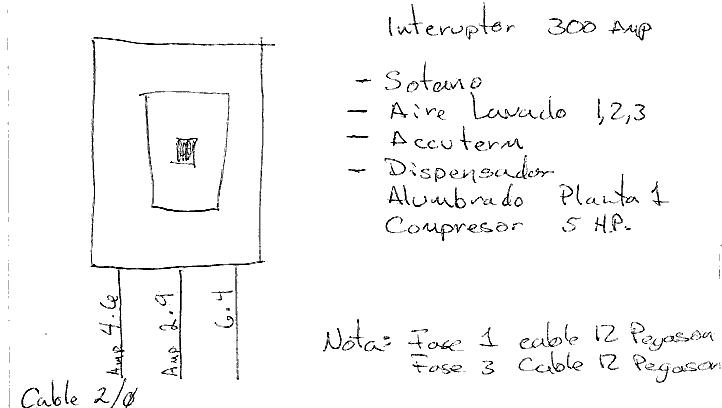 Interuptor 300 Amp
- Sotano
- Aire Lavado 1,2,3
- Accuterm
- Dispensador
Alumbrado Planta 1
Compresor 5 H.P.
Amp 4.6
Amp 2.9
6.4
Nota: Fase 1 cable 12 Pegason
Fase 3 Cable 12 Pegason
Cable 2/0